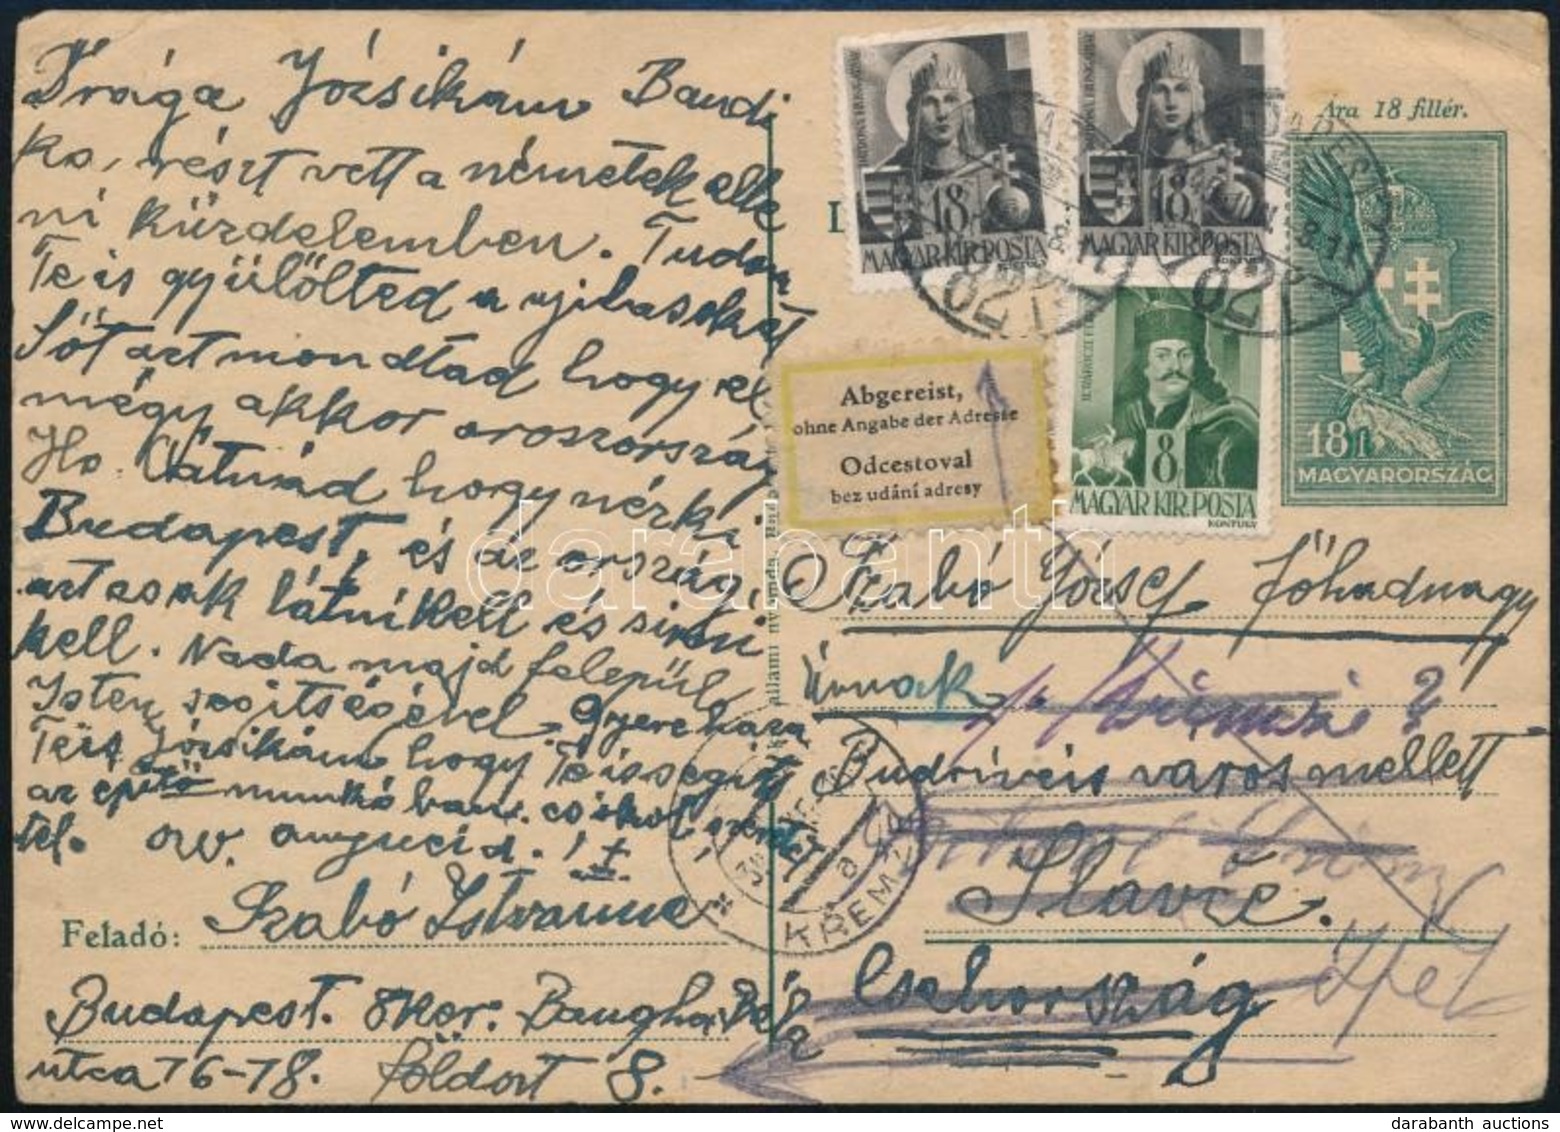 Drága Józsikám Bandi
ka, részt vett a németek elle
ni küzdelemben. Tudom
Te is gyűlölted a nyilasokat
Sőt azt mondtad hogy el
mégy akkor oroszország
Ho. Látnád hogy néz ki
Budapest, és az ország
azt csak látni kell és sirni
kell. Na de majd felepül
Isten segitségével. Gyere haza
Te is Józsikám hogy Te is segits
az epitő munkában. csókol szerető
tel. özv. anyucid. !
Feladó: Szabó Istvanne
Budapest. 8 ker. Bangha Béla
utca 76-78. földszt 8.
Ára 18 fillér.
18
MAGYAR KIR. POSTA
18
MAGYAR KIR. POSTA
8
MAGYAR KIR. POSTA
KONTULY
18 f
MAGYARORSZÁG
BUDAPEST
82
82
Abgereist,
ohne Angabe der Adresse
Odcestoval
bez udání adresy
Szabó József főhadnagy
Úrnak
Budriveis város mellett
Slavče.
Csehország
KŘEMŽE
Állami nyomda, Budapest
darabanth
darabanth auctions